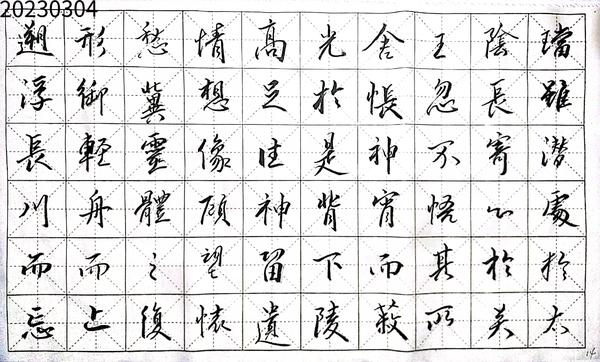 20230304
璫雖潛處於太
陰長寄心於君
王忽不悟其所
舍悵神宵而蔽
光於是背下陵
高足往神留遺
情想像顧望懷
愁冀靈體之復
形御輕舟而上
遡浮長川而忘
14